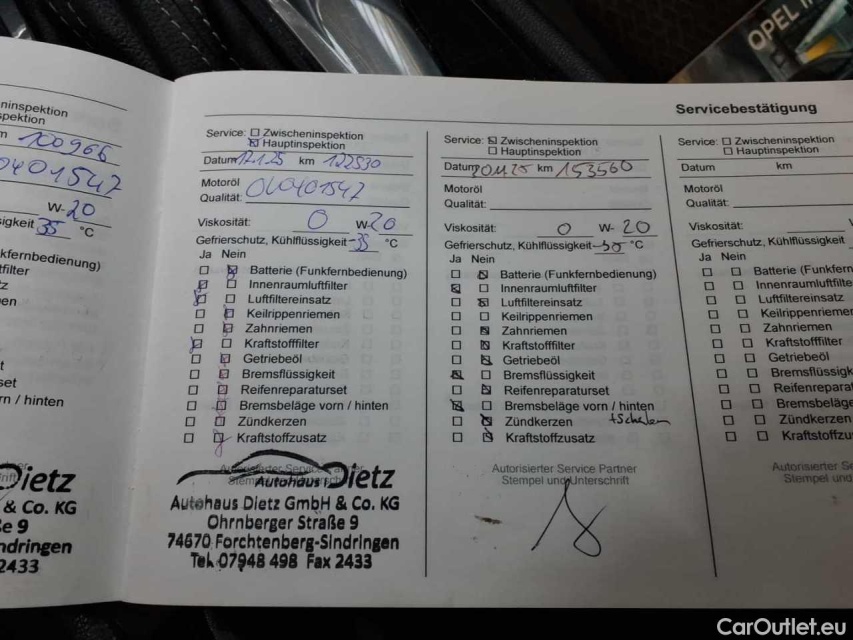 OPEL
Servicebestätigung
neninspektion
spektion
m 100966
0401547
W-20
sigkeit 35 °C
nkfernbedienung)
filter
tz
en
t
set
rn / hinten
Dietz
& Co. KG
ße 9
ndringen
2433
Service: Zwischeninspektion
Hauptinspektion
Datum 12.1.25 km 122530
Motoröl
Qualität: OV0401547
Viskosität: 0 W-20
Gefrierschutz, Kühlflüssigkeit -35 °C
Ja Nein
Batterie (Funkfernbedienung)
Innenraumluftfilter
Luftfiltereinsatz
Keilrippenriemen
Zahnriemen
Kraftstofffilter
Getriebeöl
Bremsflüssigkeit
Reifenreparaturset
Bremsbeläge vorn / hinten
Zündkerzen
Kraftstoffzusatz
Autorisierter Service Partner
Stempel und Unterschrift
Autohaus Dietz
Autohaus Dietz GmbH & Co. KG
Ohrnberger Straße 9
74670 Forchtenberg-Sindringen
Tel. 07948 498 Fax 2433
Service: Zwischeninspektion
Hauptinspektion
Datum km 153560
Motoröl
Qualität:
Viskosität: 0 W- 20
Gefrierschutz, Kühlflüssigkeit °C
Ja Nein
Batterie (Funkfernbedienung)
Innenraumluftfilter
Luftfiltereinsatz
Keilrippenriemen
Zahnriemen
Kraftstofffilter
Getriebeöl
Bremsflüssigkeit
Reifenreparaturset
Bremsbeläge vorn / hinten
Zündkerzen
Kraftstoffzusatz
Autorisierter Service Partner
Stempel und Unterschrift
Service: Zwischeninspektion
Hauptinspektion
Datum km
Motoröl
Qualität:
Viskosität:
Gefrierschutz, Kühlflüssigkeit
Ja Nein
Batterie (Funkfern
Innenraumluftfilte
Luftfiltereinsatz
Keilrippenriemen
Zahnriemen
Kraftstofffilter
Getriebeöl
Bremsflüssigk
Reifenrepara
Bremsbeläge
Zündkerzen
Kraftstoffzu
Autorisierter Se
Stempel und
CarOutlet.eu